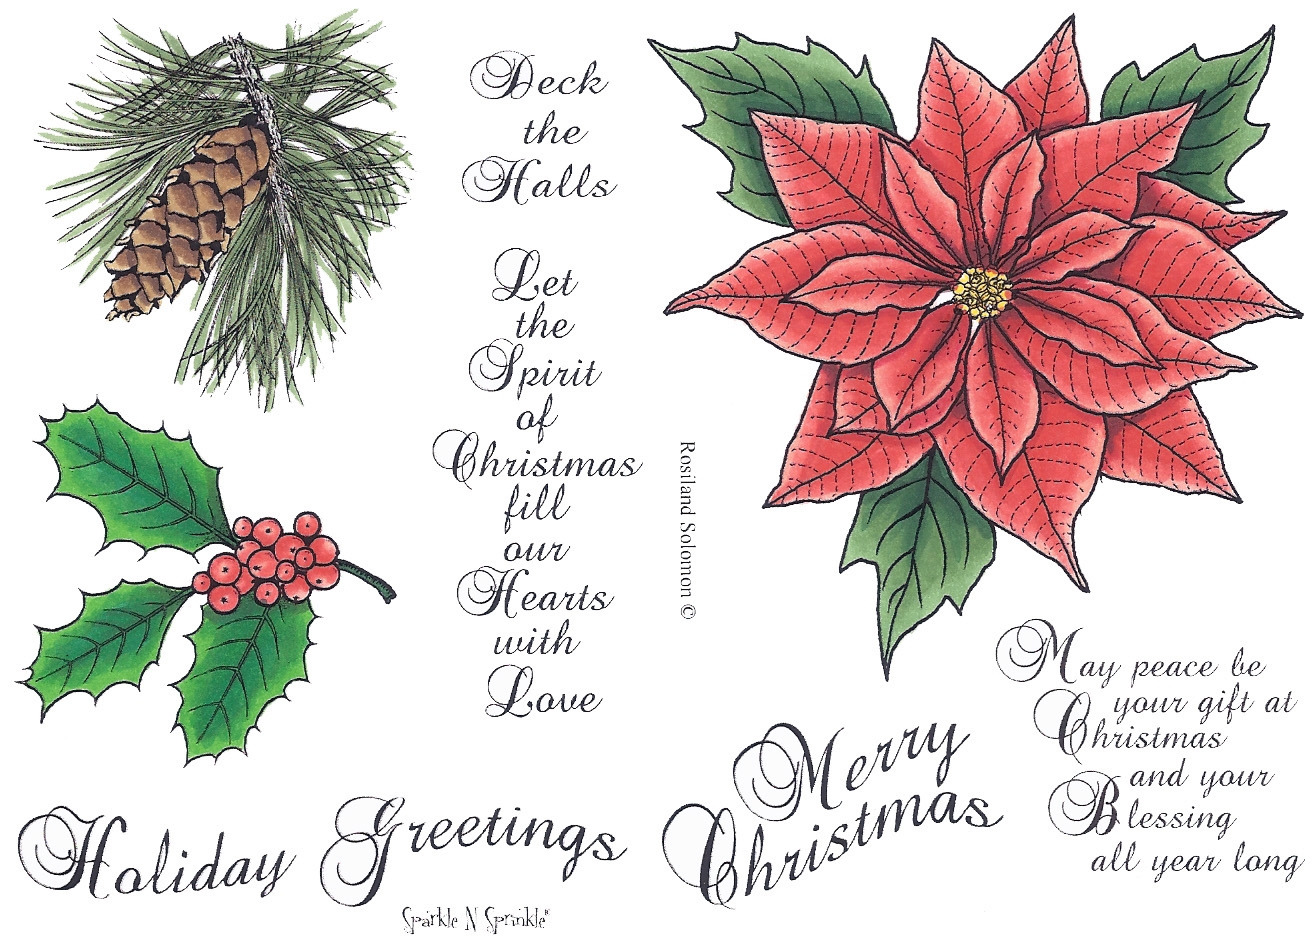 Deck
the
Halls
Let
the
Spirit
of
Christmas
fill
our
Hearts
with
Love
Rosiland Solomon ©
May peace be
your gift at
Christmas
and your
Blessing
all year long
Merry
Christmas
Holiday Greetings
Sparkle N Sprinkle®